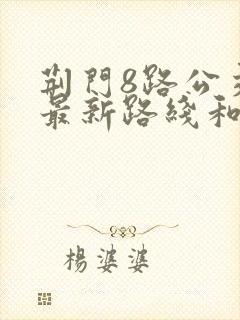 荆門8路公
最新路綫和
楊婆婆